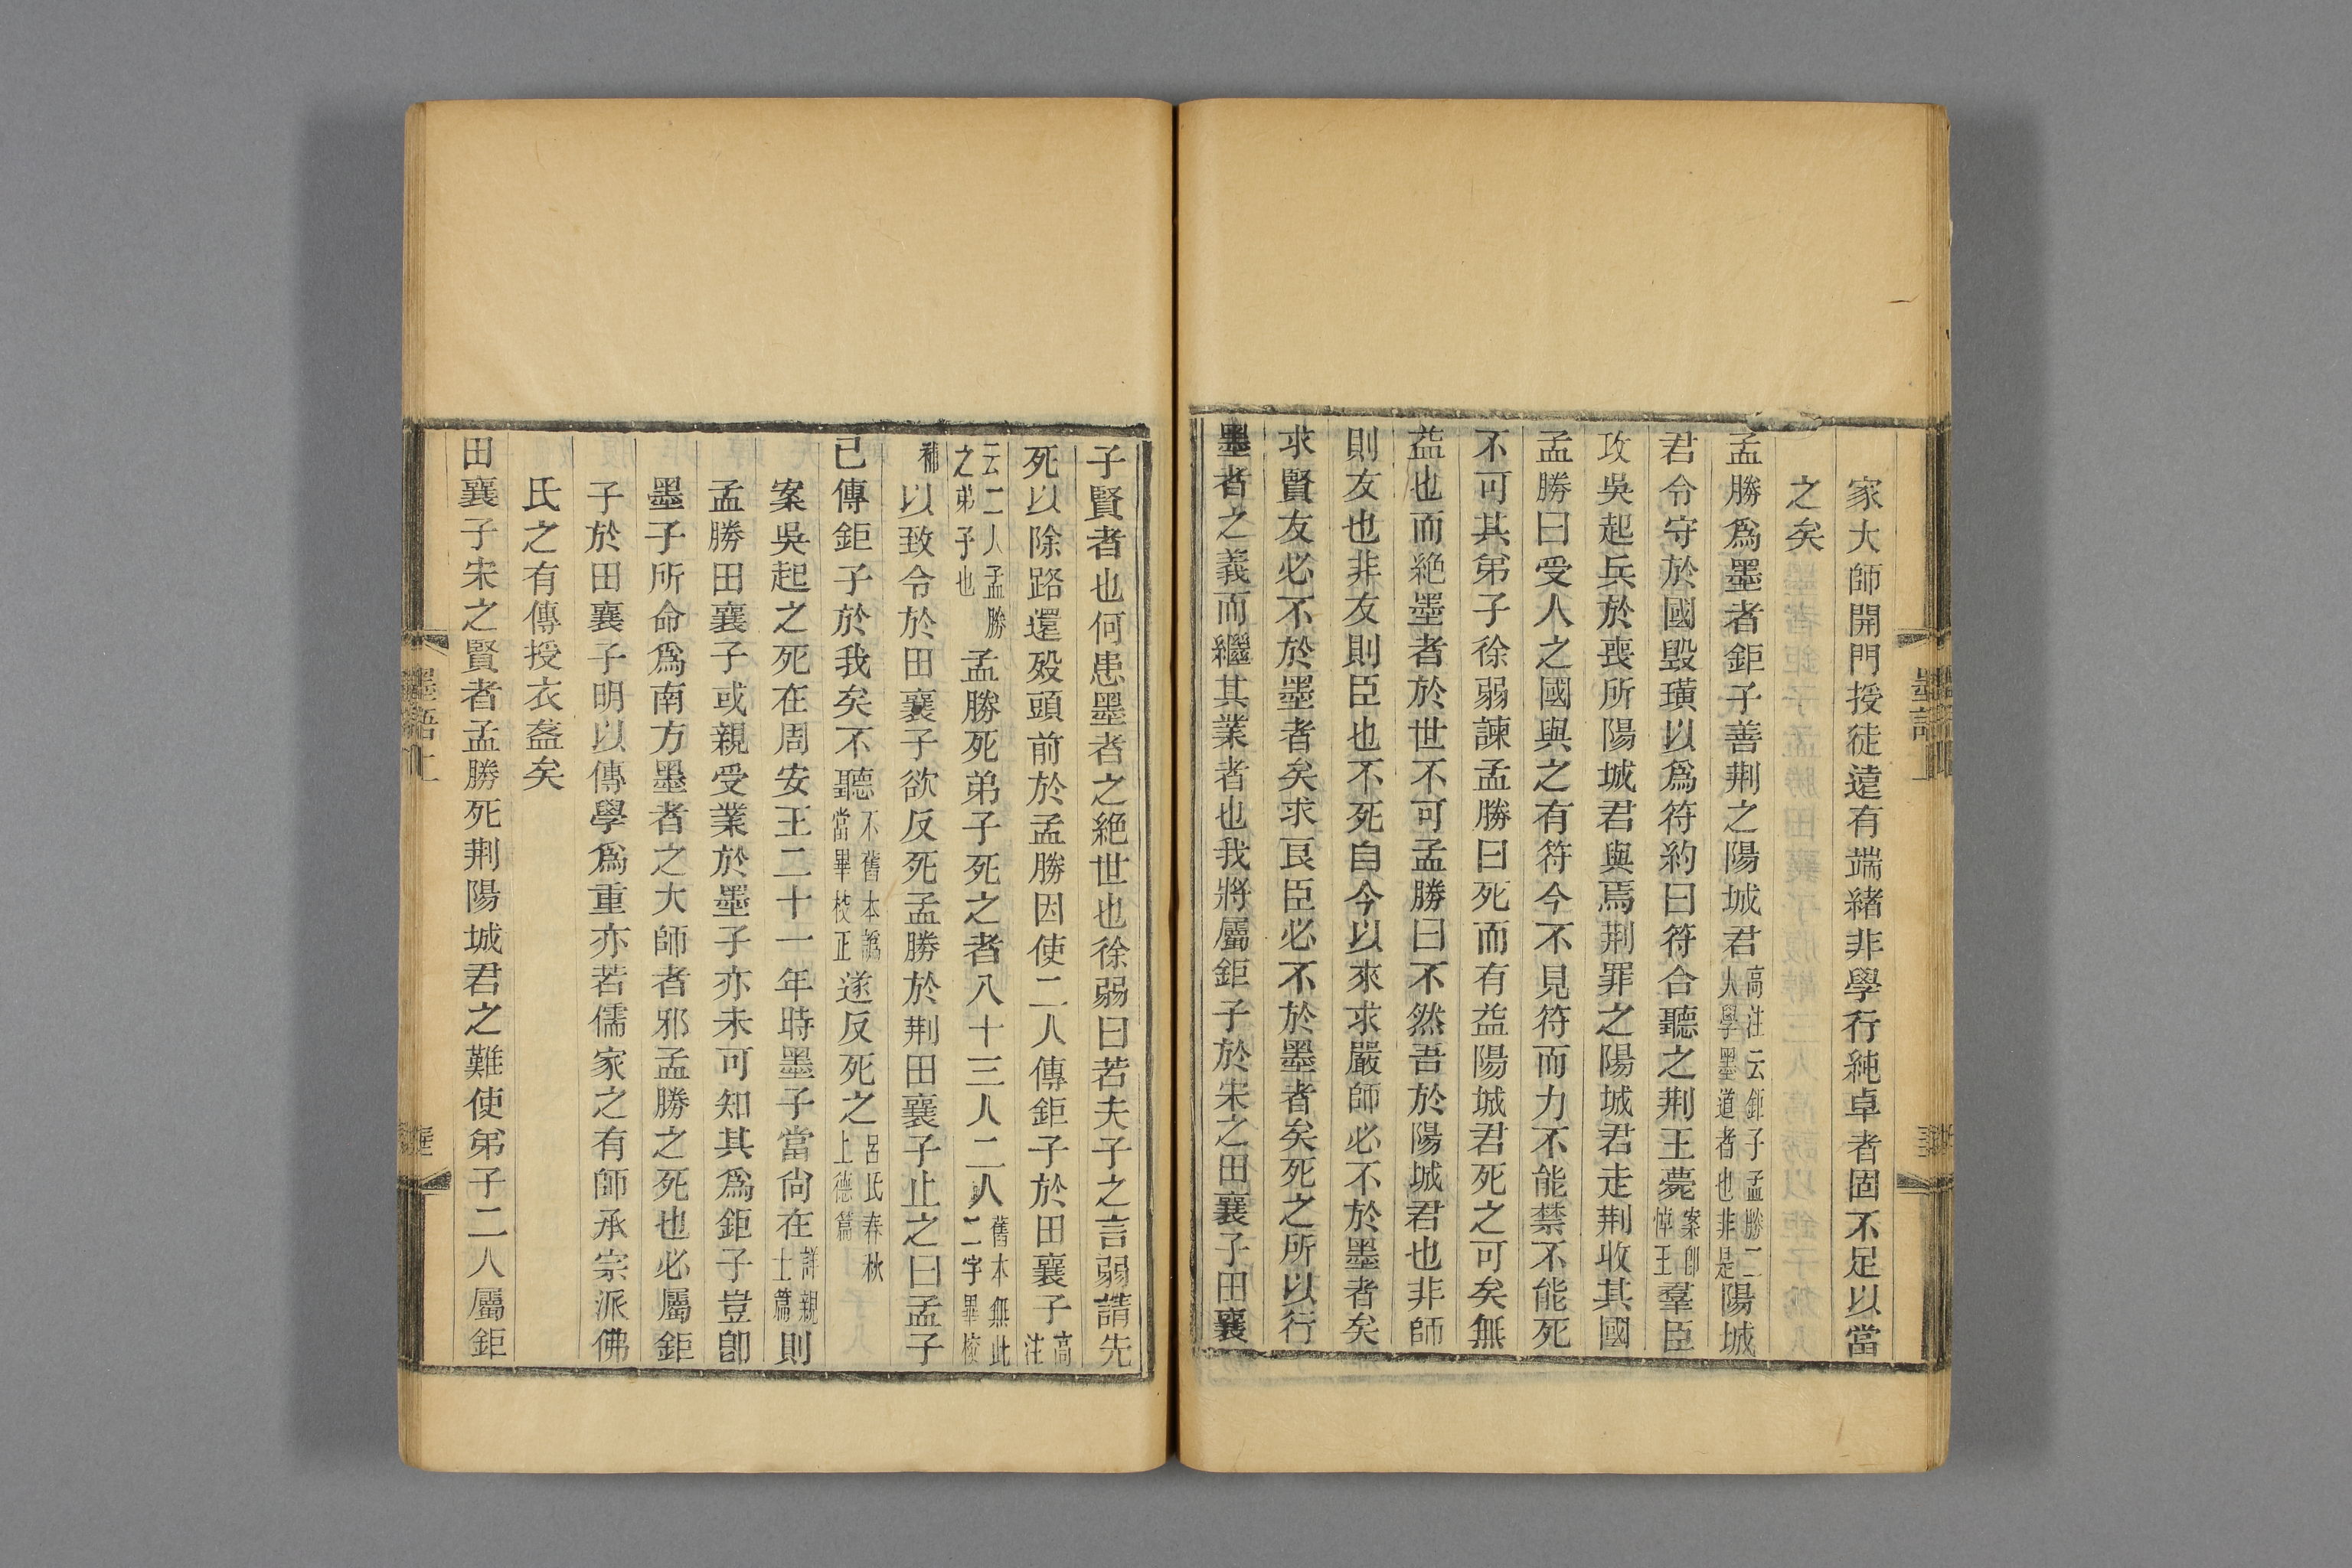 家大師開門授徒遠有端緒非學行純卓者固不足以當
之矣
孟勝爲墨者鉅子善荆之陽城君高注云鉅子孟勝二人學墨道者也非是陽城
君令守於國毀璜以爲符約曰符合聽之荆王薨案卽悼王羣臣
攻吳起兵於喪所陽城君與焉荆罪之陽城君走荆收其國
孟勝曰受人之國與之有符今不見符而力不能禁不能死
不可其弟子徐弱諫孟勝曰死而有益陽城君死之可矣無
益也而絕墨者於世不可孟勝曰不然吾於陽城君也非師
則友也非友則臣也不死自今以來求嚴師必不於墨者矣
求賢友必不於墨者矣求良臣必不於墨者矣死之所以行
墨者之義而繼其業者也我將屬鉅子於宋之田襄子田襄
墨語上
子賢者也何患墨者之絕世也徐弱曰若夫子之言弱請先
死以除路還歿頭前於孟勝因使二人傳鉅子於田襄子高注
云二人孟勝之弟子也孟勝死弟子死之者八十三人二人舊本無此二字畢校
補以致令於田襄子欲反死孟勝於荆田襄子止之曰孟子
已傳鉅子於我矣不聽不舊本譌當畢校正遂反死之呂氏春秋上德篇
案吳起之死在周安王二十一年時墨子當尙在詳親士篇則
孟勝田襄子或親受業於墨子亦未可知其爲鉅子豈卽
墨子所命爲南方墨者之大師者邪孟勝之死也必屬鉅
子於田襄子明以傳學爲重亦若儒家之有師承宗派佛
氏之有傳授衣盋矣
田襄子宋之賢者孟勝死荆陽城君之難使弟子二人屬鉅
墨語上